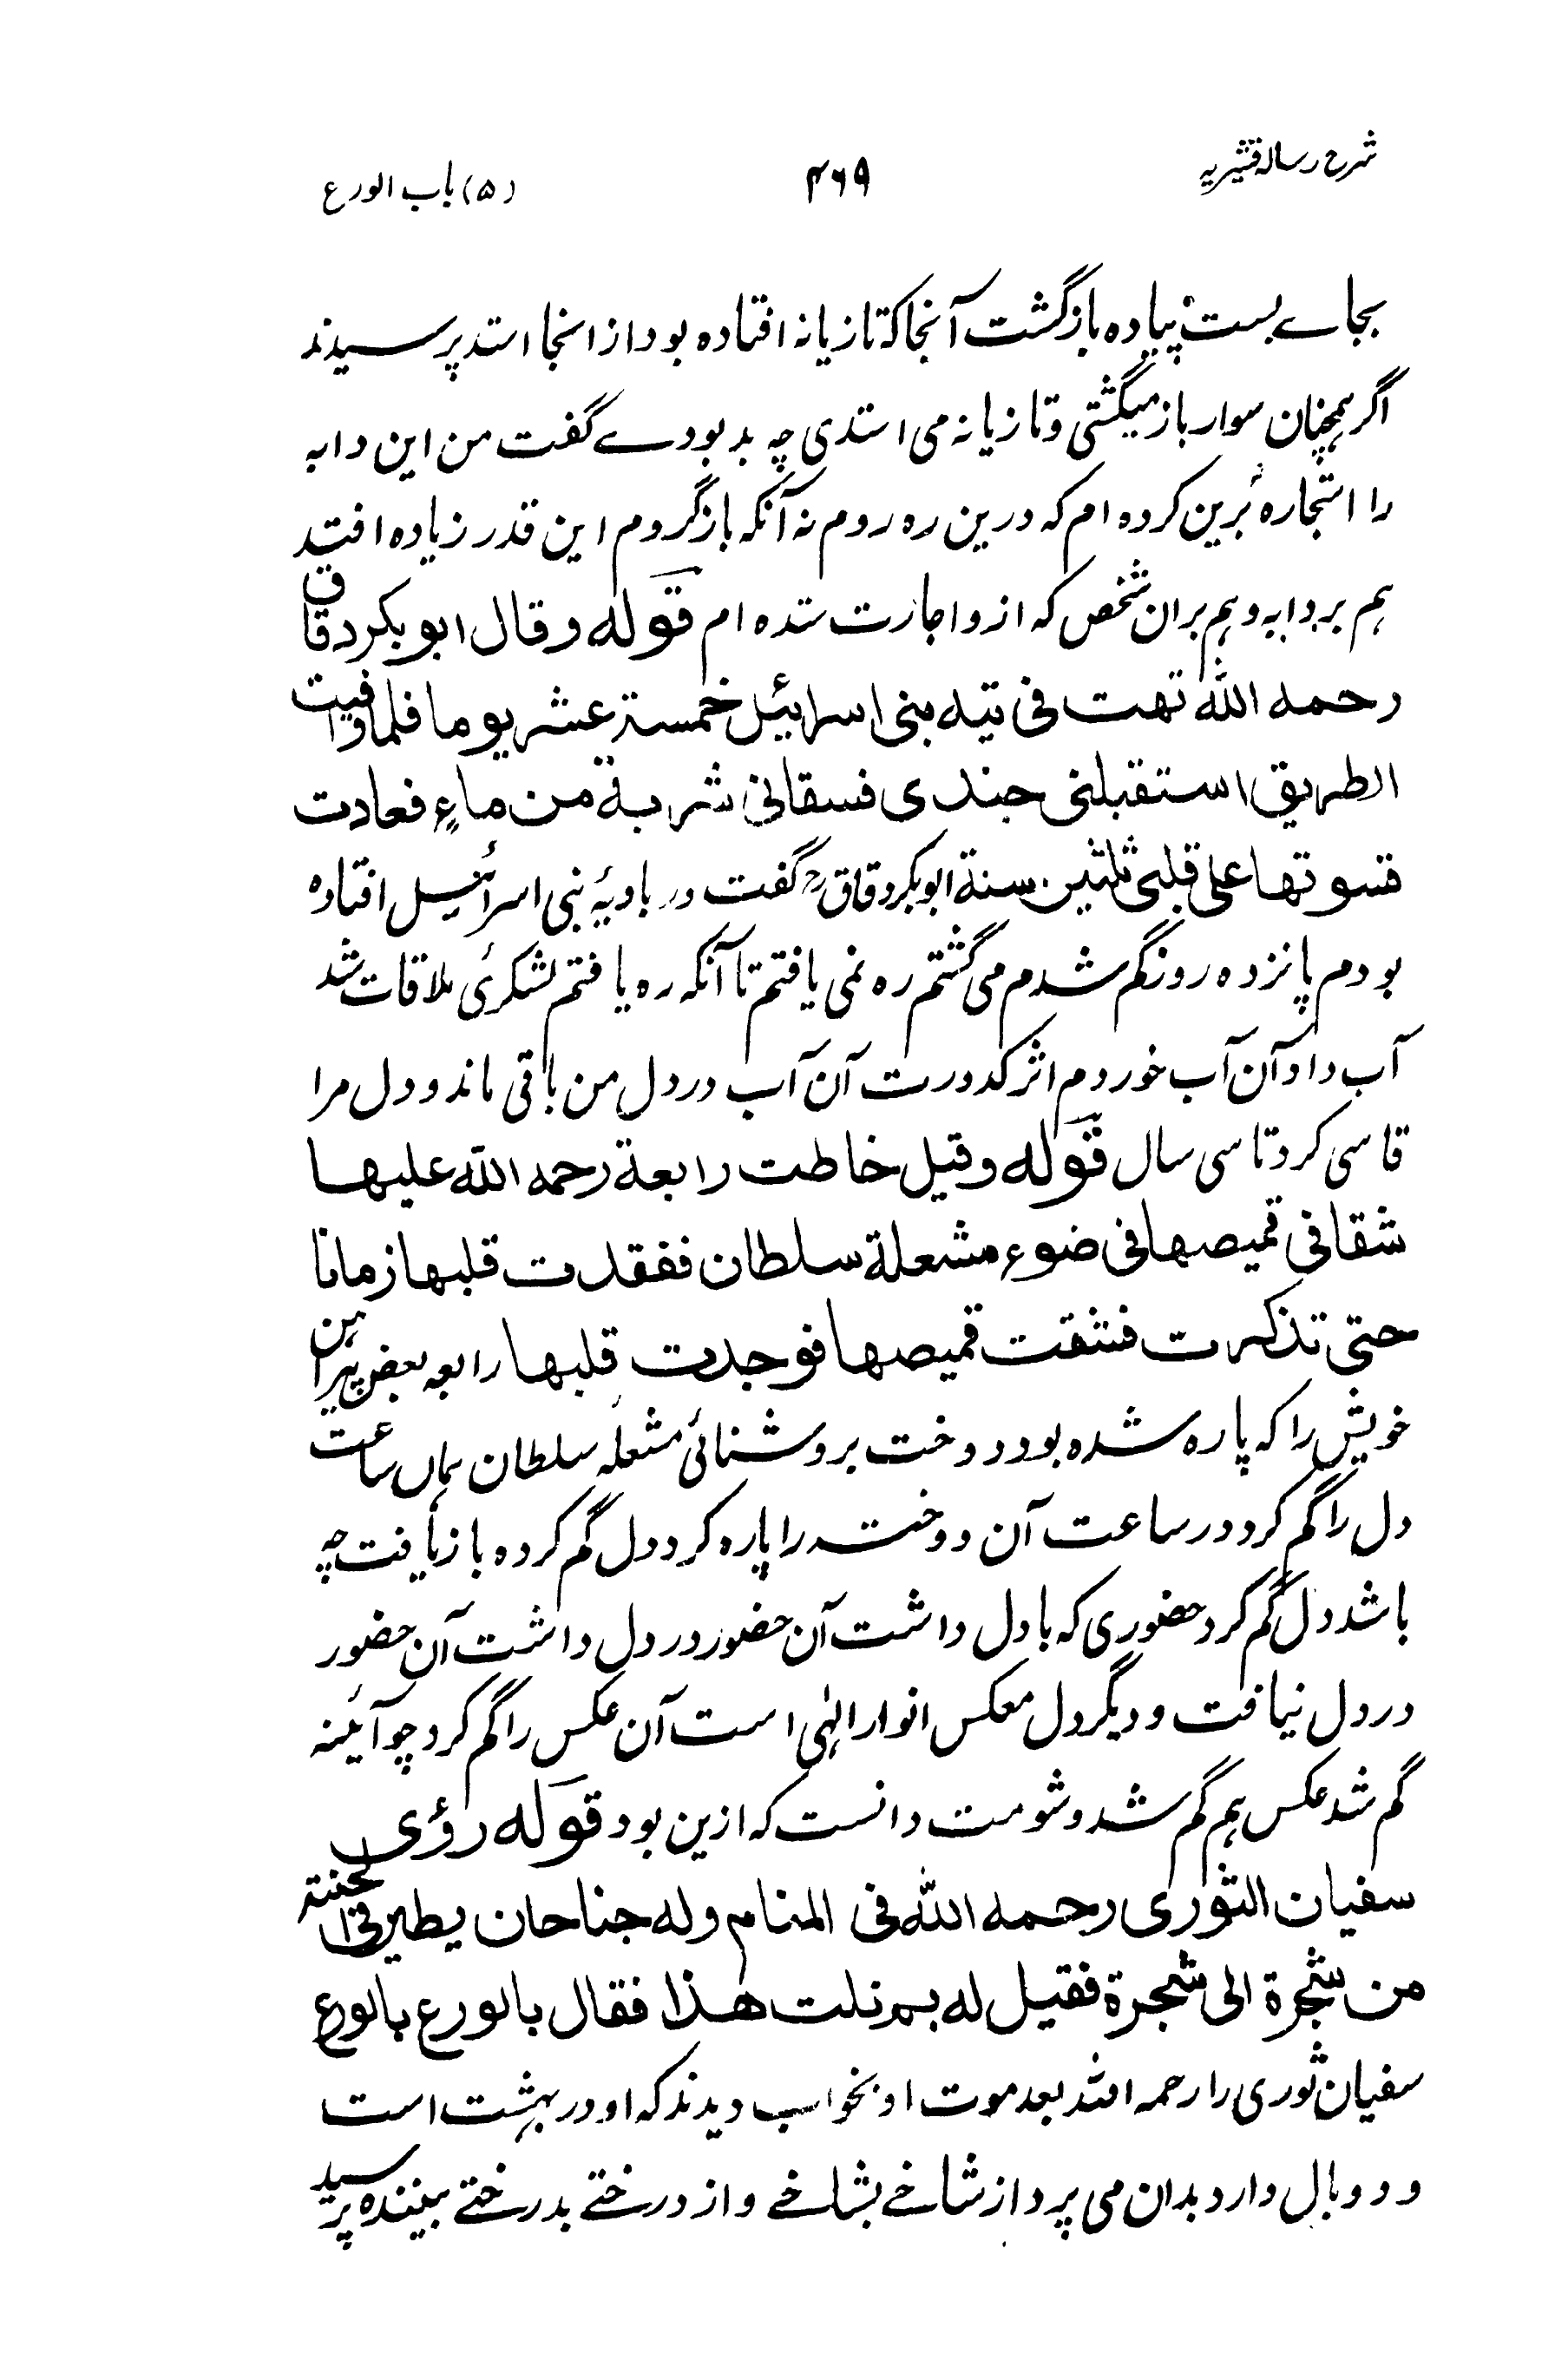 شرح رسالہ قشیریہ
۴۶۹
(۵) باب الورع
بجاے بست پیاده بازگشت آنجا کہ تازیانہ افتاده بود از انجا استد پرسیدند
اگر ہمچنان سوار باز میگشتی و تازیانہ می استدی چہ بد بودے گفت من این دابہ
را استجاره برین کرده ام کہ درین ره روم نہ آنکہ بازگردم این قدر زیاده افتد
ہم بر دابہ و ہم بران شخص کہ ازو اجارت ستده ام قولہ وقال ابو بکر دقاق
رحمہ اللہ تھت فی تیہ بنی اسرائیل خمسۃ عشر یوما فلما وافیت
الطریق استقبلنی جندی فسقانی شربۃ من ماءٍ فعادت
قسوتھا علی قلبی ثلثین سنۃ ابوبکر دقاق رح گفت در بادیۂ بنی اسرائیل افتاده
بودم پانزده روز گم شدم می گشتم ره نمی یافتم تا آنکہ ره یافتم لشکرئ ملاقات شد
آب داد آن آب خوردم اثر کدورت آن آب در دل من باقی ماند و دل مرا
قاسی کرد تا سی سال قولہ وقیل خاطت رابعۃ رحمہ اللہ علیھا
شقا فی قمیصھا فی ضوء مشعلۃ سلطان ففقدت قلبھا زمانا
حتی تذکرت فشقت قمیصھا فوجدت قلبھا رابعہ بعض پیراہن
خویش را کہ پاره شده بود دوخت بروشنائی مشعلہ سلطان ہماں ساعت
دل را گم کرد در ساعت آن دوختہ را پاره کرد دل گم کرده باز یافت چہ
باشد دل گم کرد حضوری کہ با دل داشت آن حضور در دل داشت آن حضور
در دل نیافت و دیگر دل معکس انوار الہی است آن عکس را گم کرد چو آئینہ
گم شد عکس ہم گم شد و شومت دانست کہ ازین بود قولہ رؤی
سفیان الثوری رحمہ اللہ فی المنام ولہ جناحان یطیر فی الجنۃ
من شجرة الی شجرة فقیل لہ بم نلت ھذا فقال بالورع بالورع
سفیان ثوری را رحمہ اللہ بعد موت او بخواب دیدند کہ او در بہشت است
و دو بال دارد بدان می پرد از شاخے بشاخے و از درختے بدرختے بینندہ پرسید